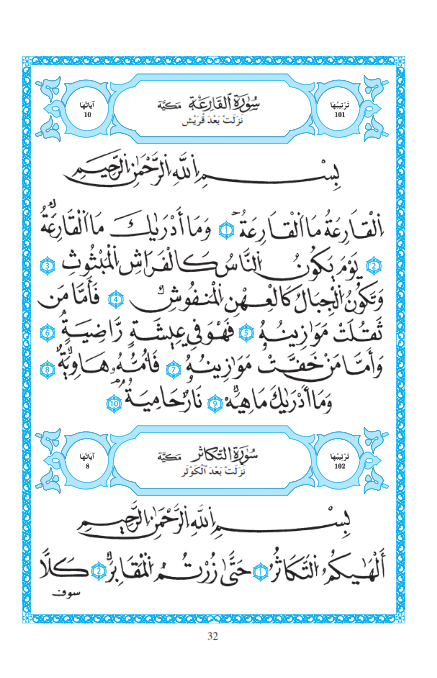 آيَاتُهَا 10 سُورَةُ اَ۬لْقَارِعَةِ مَكِّيَّة تَرْتِيبُهَا 101
نَزَلَتْ بَعْدَ قُرَيْش
بِسْمِ اِ۬للَّهِ اِ۬لرَّحْمَٰنِ اِ۬لرَّحِيمِ
اَ۬لْقَارِعَةُ مَا اَ۬لْقَارِعَةُ 1 وَمَا أَدْر۪يٰكَ مَا اَ۬لْقَارِعَةُ
2 يَوْمَ يَكُونُ اُ۬لنَّاسُ كَالْفَرَاشِ اِ۬لْمَبْثُوثِ 3
وَتَكُونُ اُ۬لْجِبَالُ كَالْعِهْنِ اِ۬لْمَنفُوشِ 4 فَأَمَّا مَن
ثَقُلَتْ مَوَٰزِينُهُۥ 5 فَهُوَ فِي عِيشَةٖ رَّاضِيَةٖ 6
وَأَمَّا مَنْ خَفَّتْ مَوَٰزِينُهُۥ 7 فَأُمُّهُۥ هَاوِيَةٞ 8
وَمَا أَدْر۪يٰكَ مَا هِيَهْ 9 نَارٌ حَامِيَةٌ 10
آيَاتُهَا 8 سُورَةُ اَ۬لتَّكَاثُرِ مَكِّيَّة تَرْتِيبُهَا 102
نَزَلَتْ بَعْدَ اَ۬لْكَوْثَر
بِسْمِ اِ۬للَّهِ اِ۬لرَّحْمَٰنِ اِ۬لرَّحِيمِ
أَلْه۪يٰكُمُ اُ۬لتَّكَاثُرُ 1 حَتَّىٰ زُرْتُمُ اُ۬لْمَقَابِرَ 2 كَلَّا
سوف
32